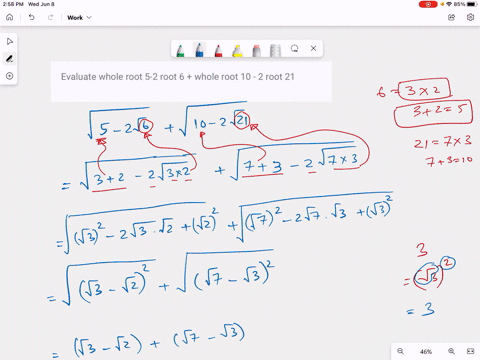 2:58 PM Wed Jun 8
85%
Work
Evaluate whole root 5-2 root 6 + whole root 10 - 2 root 21
√(5 - 2√6) + √(10 - 2√21)
= √(3 + 2 - 2√(3 × 2)) + √(7 + 3 - 2√(7 × 3))
= √((√3)² - 2√3 . √2 + (√2)²) + √((√7)² - 2√7 . √3 + (√3)²)
= √((√3 - √2)²) + √((√7 - √3)²)
= (√3 - √2) + (√7 - √3)
6 = 3 × 2
3 + 2 = 5
21 = 7 × 3
7 + 3 = 10
3
= (√3)²
= 3
46%